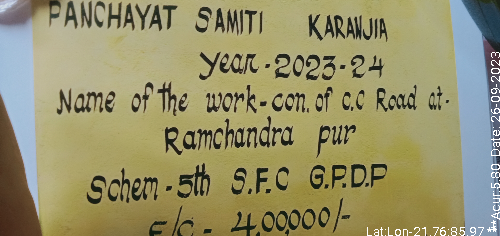 PANCHAYAT SAMITI KARANJIA
Year - 2023-24
Name of the work - con. of C.C Road at-
Ramchandra pur
Schem - 5th S.F.C G.P.D.P
E/C - 4,00,000/-
Lat:Lon-21.76:85.97
**Acur:5.80 Date: 26-09-2023